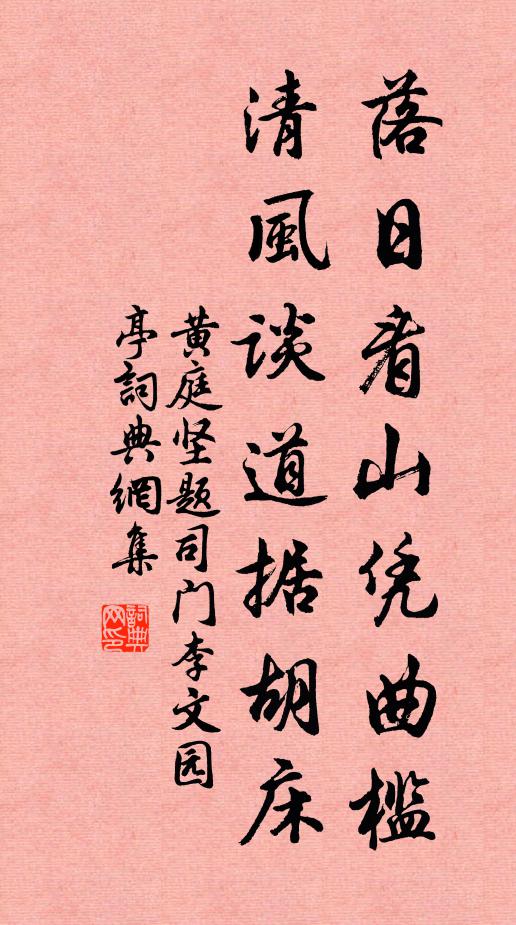 落日看山凭曲槛
清風談道据胡床
黄庭坚题司门李文园
亭詞典網集
詞典
网印